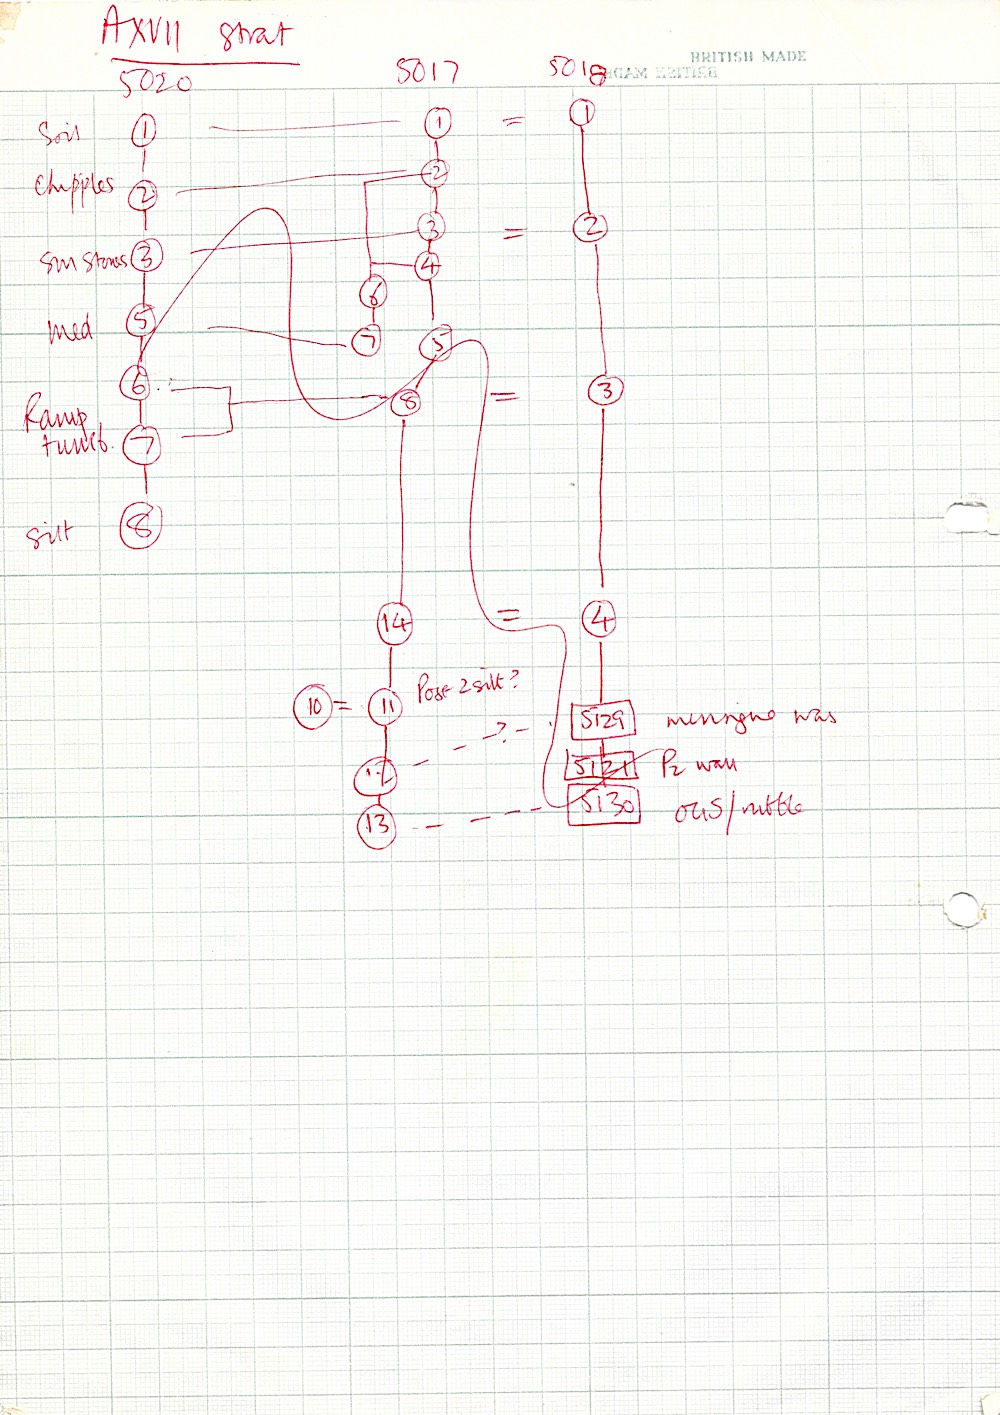 AXVII strat
BRITISH MADE
5020 5017 5018
Soil 1 1 = 1
Chipples 2 2
3 = 2
Sm Stones 3 4
6
Med 5 7 5
6 8 = 3
Ramp
tumb. 7
Silt 8
14 = 4
10 = 11 Post 2 silt? 5129
12 ? 5121 P2 wall
13 5130 OGS/rubble